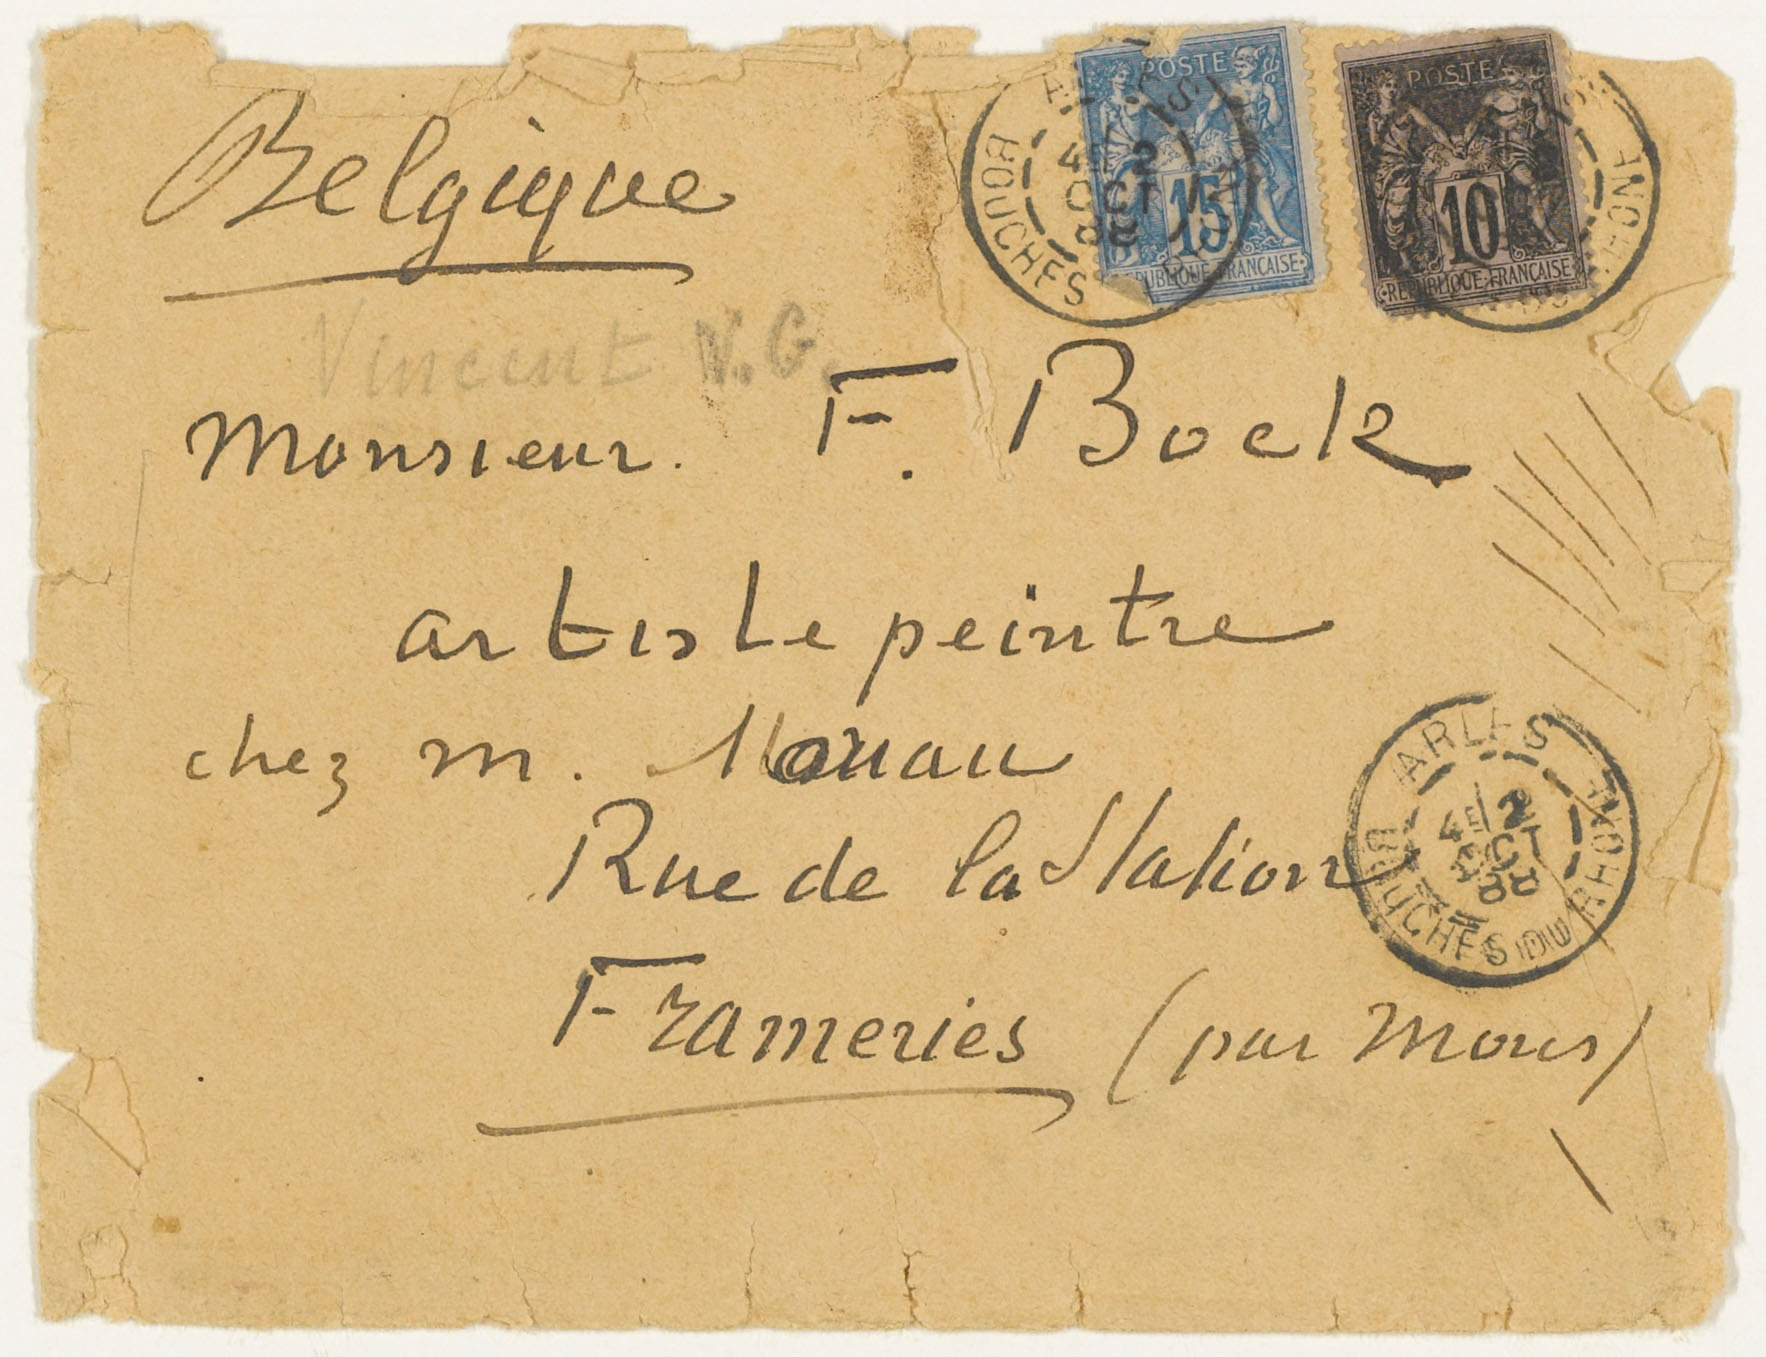 Belgique
Vincent V.G.
Monsieur. F. Bock
artiste peintre
chez m.
Rue de la Station
Frameries (par Mons)
POSTE
15
RÉPUBLIQUE FRANÇAISE
POSTE
10
REPUBLIQUE FRANÇAISE
BOUCHES
2
OCT
88
RHONE
ARLES
BOUCHES DU RHONE
4E 2
OCT
88